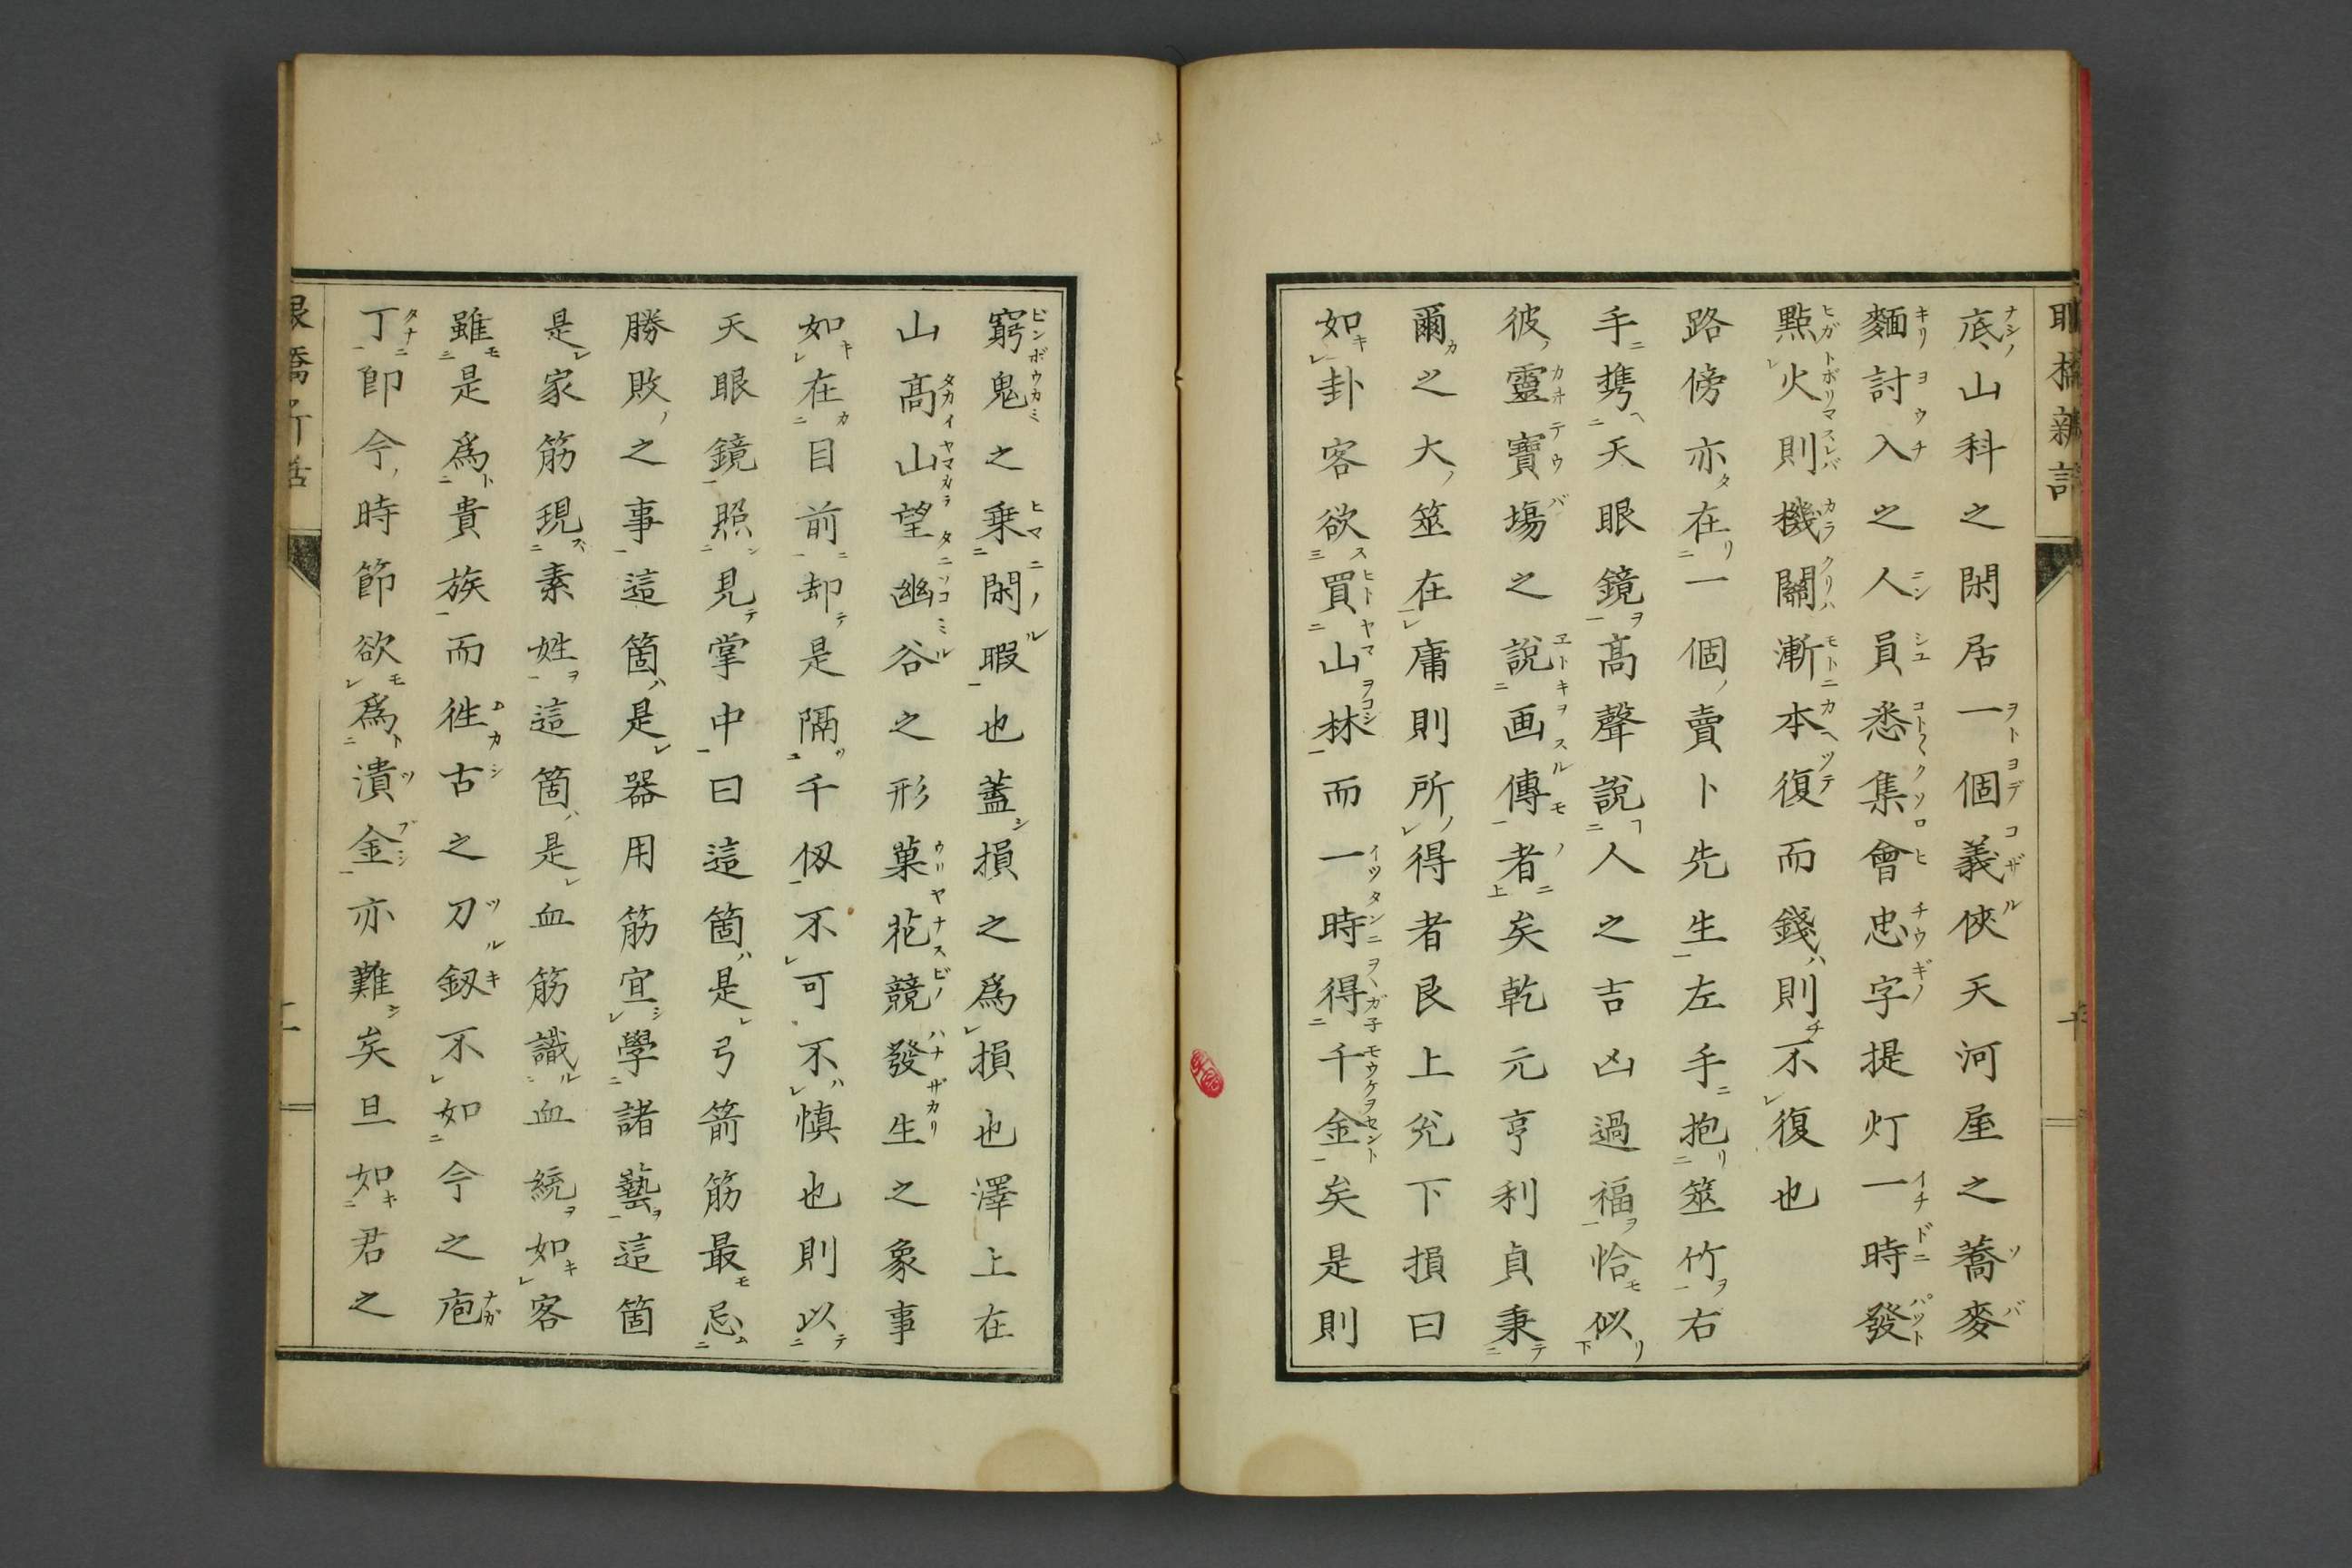 底山科之閑居一個義俠天河屋之蕎麥
麵討入之人員悉集會忠字提灯一時發
點火則機關漸本復而錢則不復也
路傍亦在一個賣卜先生左手抱筮竹右
手携天眼鏡高聲說人之吉凶過福恰似
彼靈寶場之說画傳者矣乾元亨利貞秉
爾之大筮在庸則所得者艮上兊下損曰
如卦客欲買山林而一時得千金矣是則
窮鬼之乗閑暇也蓋損之爲損也澤上在
山高山望幽谷之形菓花競發生之象事
如在目前却是隔千仭不可不慎也則以
天眼鏡照見掌中曰這箇是弓箭筋最忌
勝敗之事這箇是器用筋宜學諸藝這箇
是家筋現素姓這箇是血筋識血統如客
雖是爲貴族而徃古之刀釼不如今之庖
丁即今時節欲爲潰金亦難矣旦如君之